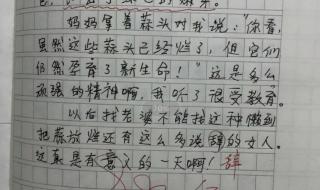 妈妈拿着蒜头对我说：“你看，
虽然这些蒜头已经烂了，但它们
仍然孕育了新生命！”这是多么
顽强的精神啊，我听了很受教育。
以后找老婆不能找这种懒到
把蒜放烂还有这么多说辞的女人。
这真是有意义的一天啊！辞